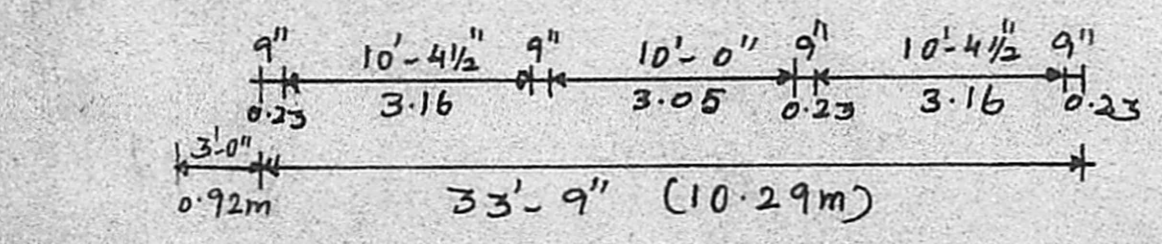 9" 10'-4½" 9" 10'-0" 9" 10'-4½" 9"
0.23 3.16 3.05 0.23 3.16 0.23
3'-0"
0.92m 33'-9" (10.29m)